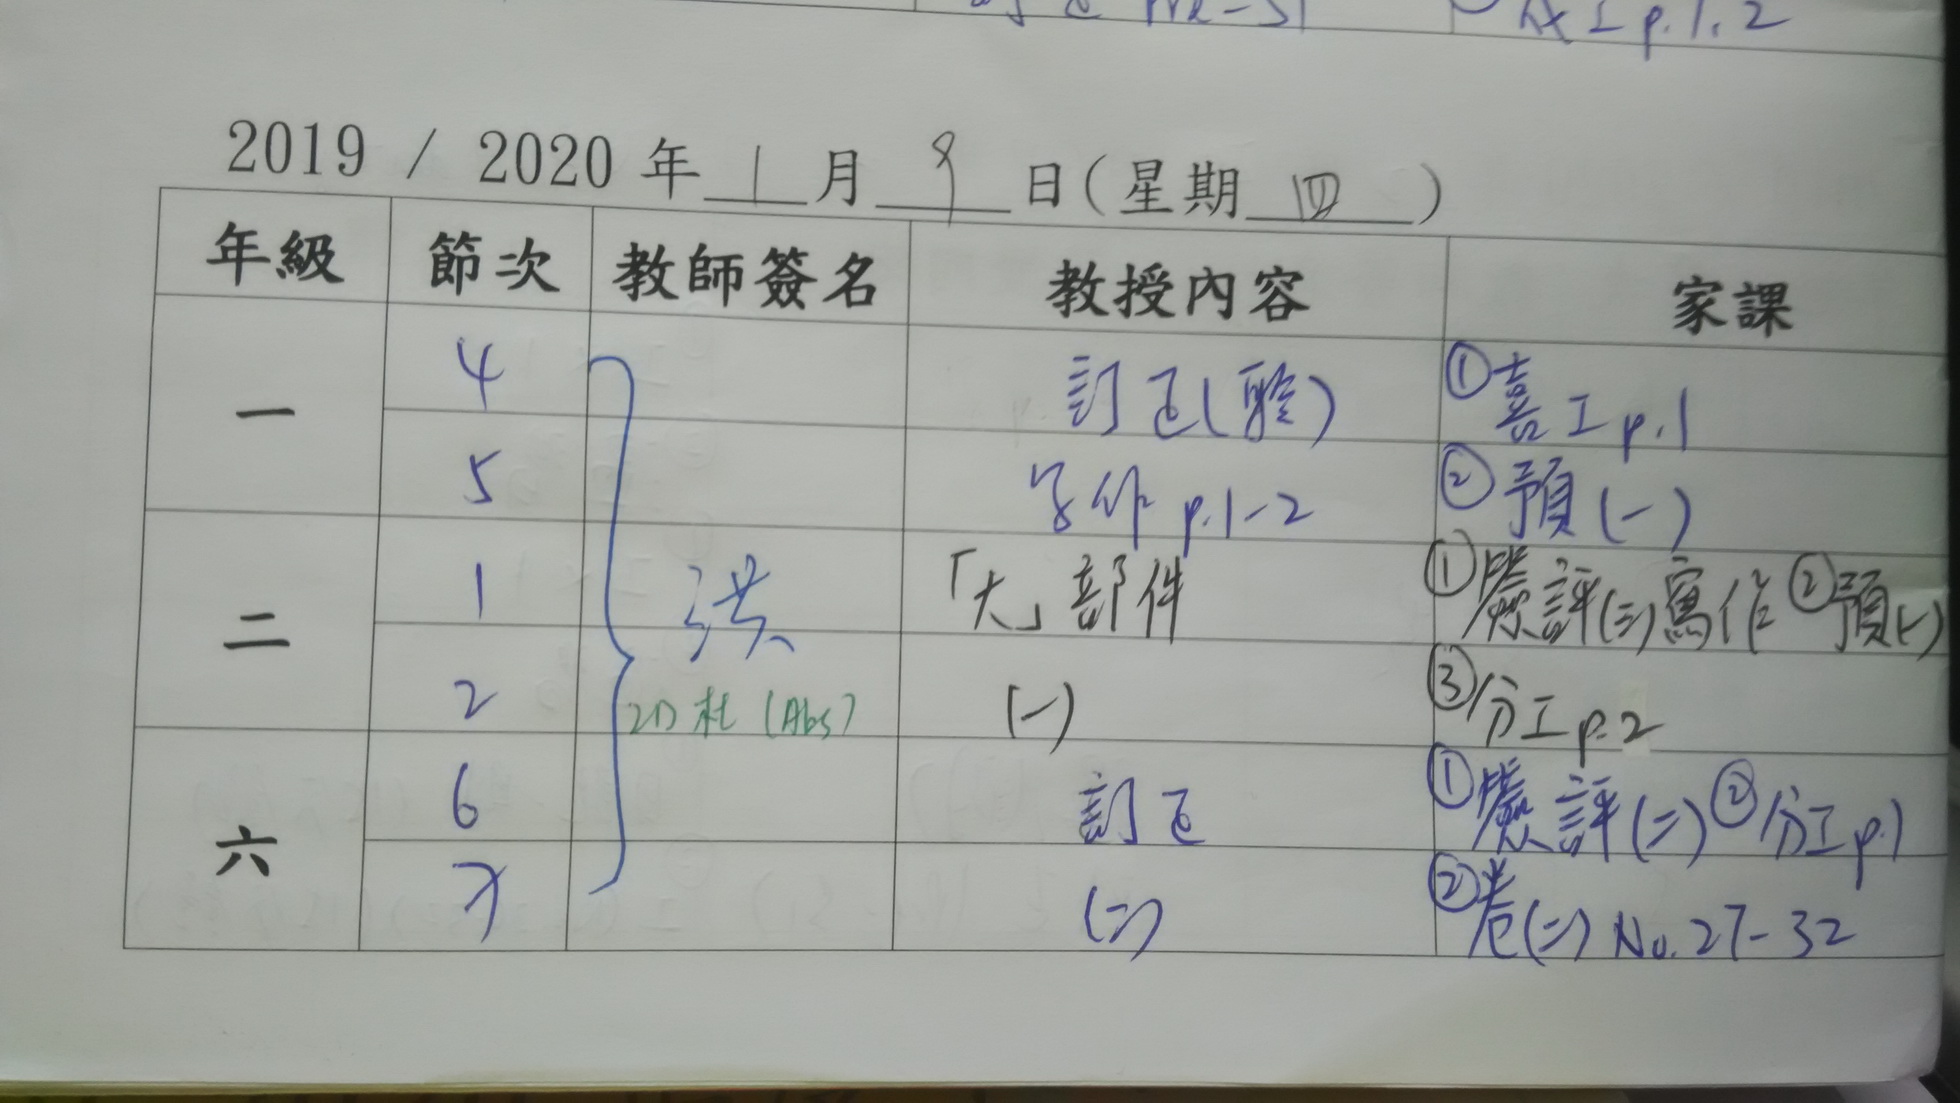 p.1,2
2019 / 2020 年 1 月 9 日(星期 四 )
年級 節次 教師簽名 教授內容 家課
一 4 訂正(聆) ①喜工p.1
5 写作 p.1-2 ②預(一)
二 1 洪 「大」部件 ①展評(三)寫作 ②預(一)
2 2D 杜 (Abs) (一) ③分工p.2
六 6 訂正 ①展評(二) ②分工p.1
7 (二) ②卷(二) No.27-32